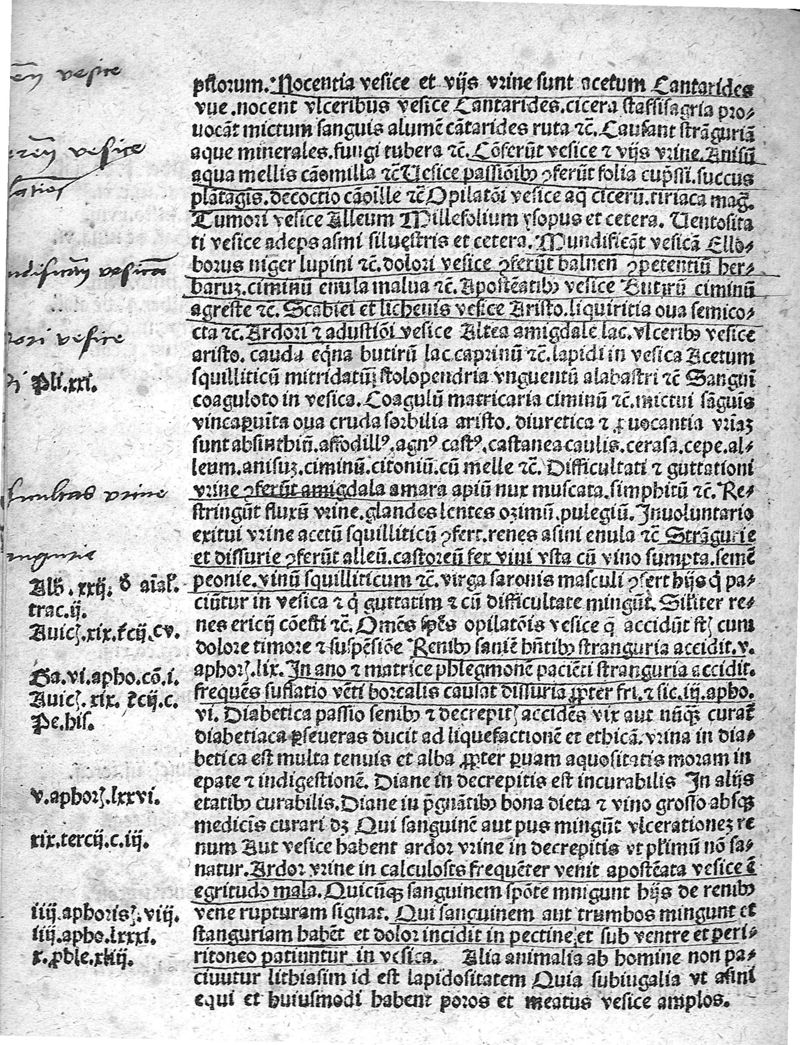 vesice
pstorum. Nocentia vesice et vijs vrine sunt acetum Cantarides
vue. nocent vlceribus vesice Cantarides. cicera staffisagria pro-
vocāt mictum sanguis alumē cātarides ruta ⁊c̄. Causant strāguriā
aque minerales. fungi tubera ⁊c̄. Cōferūt vesice ⁊ vijs vrine. Anisū
vesice
aqua mellis camomilla ⁊c̄ Vesice passiōibꝫ ꝯferūt folia cup̄ssi. succus
platagis. decoctio cāoille ⁊c̄ Opilatōi vesice aq̄ cicerū. tiriaca maḡ.
Tumori vesice Alleum Millefolium ysopus et cetera. Ventosita
ti vesice adeps asini siluestris et cetera. Mundificāt vesicā Ello-
borus niger lupini ⁊c̄. dolori vesice ꝯferūt balnea ꝯpetentiū her-
baruꝫ. ciminū enula malua ⁊c̄. Apostēatibꝫ vesice Butirū ciminū
agreste ⁊c̄. Scabiei et lichenis vesice Aristo. liquiritia oua semico-
cta ⁊c̄. Ardori ⁊ adustiōi vesice Altea amigdale lac. vlceribꝫ vesice
vesice
aristo. cauda eq̄na butirū lac caprinū ⁊c̄. lapidi in vesica Acetum
squilliticū mitridatūꝫ stolopendria vnguentū alabastri ⁊c̄ Sanguī
Pli. xxi.
coaguloto in vesica. Coagulū matricaria ciminū ⁊c̄. mictui sāguis
vincapuīta oua cruda sorbilia aristo. diuretica ⁊ ꝓuocantia vrīaꝫ
sunt absinthiū. affodillꝰ. agnꝰ castꝰ. castanea caulis. cerasa. cepe. al-
leum. anisuꝫ. ciminū. citoniū. cū melle ⁊c̄. Difficultati ⁊ guttationi
vrine ꝯferūt amigdala amara apiū nux muscata. simphitū ⁊c̄. Re-
vrine
stringūt fluxū vrine. glandes lentes ozimū. pulegiū. Inuoluntario
exitui vrine acetū squilliticū ꝯfert. renes asini enula ⁊c̄ Strāgurie
et dissurie ꝯferūt alleū. castoreū fex vini vsta cū vino sumpta. semē
peonie. vinū squilliticum ⁊c̄. virga saronis masculi ꝯfert hijs q̄ pa-
trac. ij.
ciūtur in vesica ⁊ q̄ guttatim ⁊ cū difficultate mingūt. Siliter re-
nes ericij cōesti ⁊c̄. Omēs sp̄es opilatōis vesice q̄ accidūt sꝫ cum
dolore timore ⁊ suspēsiōe Renibꝫ saniē hn̄tibꝫ stranguria accidit. v.
aphorꝫ. lix. In ano ⁊ matrice phlegmonē paciēti stranguria accidit.
Ga. vi. apho. cō. i.
frequēs suflatio vēti borealis causat dissuria ꝓpter fri. ⁊ sic. iij. apho.
vi. Diabetica passio senibꝫ ⁊ decrepitꝫ accidēs vix aut nūꝙ curat̄
Pe. his.
diabetica ꝑseueras ducit ad liquefactionē et ethicā. vrina in dia-
betica est multa tenuis et alba ꝓpter paruam aquositatis moram in
epate ⁊ indigestionē. Diane in decrepitis est incurabilis In alijs
v. aphorꝫ. lxxvi.
etatibꝫ curabilis. Diane in p̄gnātibꝫ bona dieta ⁊ vino grosso absqꝫ
medicīs curari dꝫ Qui sanguinē aut pus mingūt vlcerationeꝫ re
xix. tercij. c. iij.
num Aut vesice habent ardor vrine in decrepitis vt plīmū nō sa-
natur. Ardor vrine in calculosis frequēter venit apostēata vesice ē
egritudo mala. Quicūqꝫ sanguinem spōte mnigunt hijs de renibꝫ
iiij. aphorisꝫ. viij.
vene rupturam signat. Qui sanguinem aut trumbos mingunt et
iiij. apho. lxxxi.
stanguriam habēt et dolor incidit in pectine et sub ventre et peri-
ritoneo patiuntur in vesica. Alia animalia ab homine non pa-
ciuutur lithiasim id est lapidositatem Quia subiugalia vt asini
equi et huiusmodi habent poros et meatus vesice amplos.